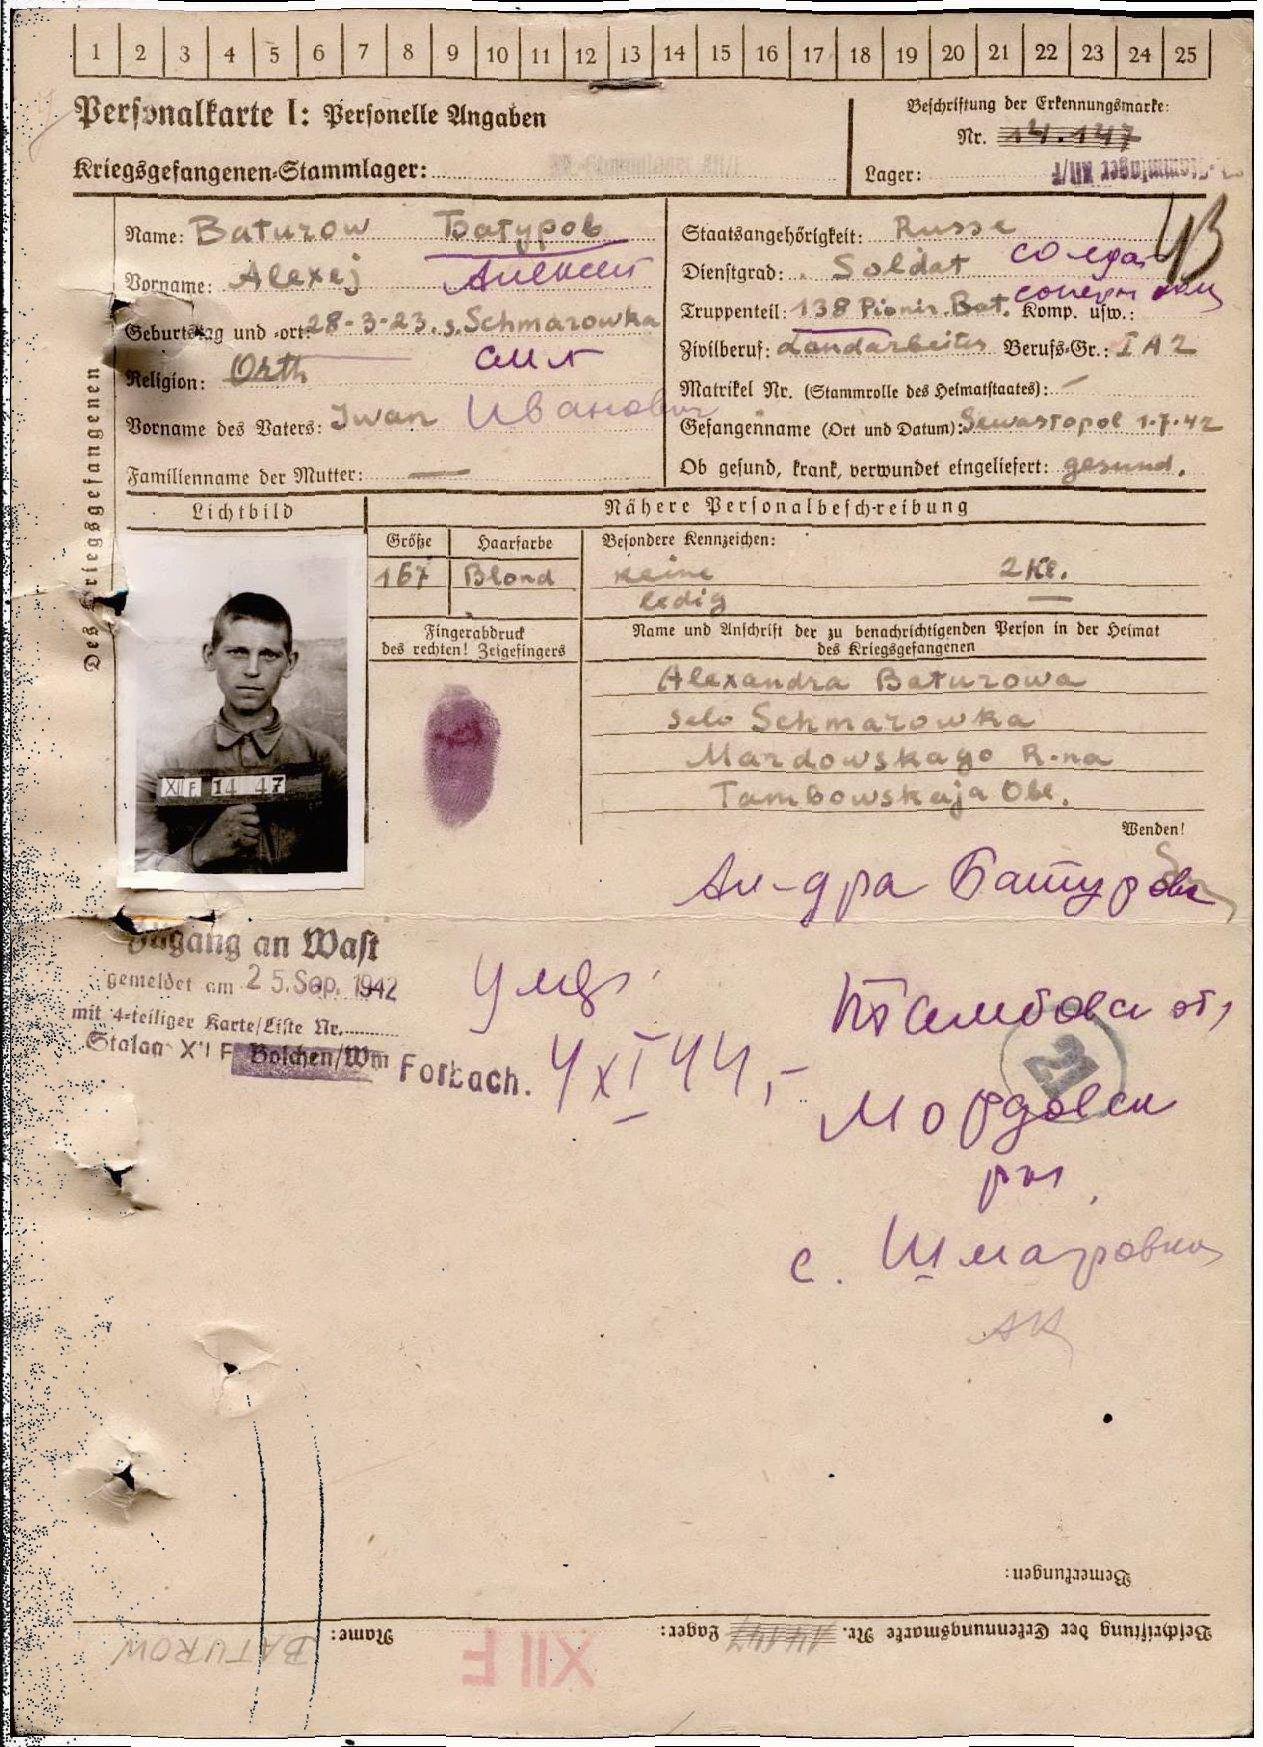 1 2 3 4 5 6 7 8 9 10 11 12 13 14 15 16 17 18 19 20 21 22 23 24 25
Personalkarte I: Personelle Angaben
Kriegsgefangenen-Stammlager:
Beschriftung der Erkennungsmarke:
Nr. 14.147
Lager: Stammlager XII/F
Des Kriegsgefangenen
Name: Baturow Батуров
Vorname: Alexej Алексей
Geburtstag und -ort: 28-3-23. s. Schmarowka
Religion: Orth
Vorname des Vaters: Iwan Иванович
Familienname der Mutter: —
Staatsangehörigkeit: Russe
Dienstgrad: Soldat солдат
Truppenteil: 138 Pionir. Bat. Komp. usw.:
Zivilberuf: Landarbeiter Berufs-Gr.: I A 2
Matrikel Nr. (Stammrolle des Heimatstaates): —
Gefangenname (Ort und Datum): Sewastopol 1.7.42
Ob gesund, krank, verwundet eingeliefert: gesund.
Lichtbild
Nähere Personalbeschreibung
Größe Haarfarbe Besondere Kennzeichen:
167 Blond keine 2 Kl.
ledig
Fingerabdruck
des rechten! Zeigefingers
Name und Anschrift der zu benachrichtigenden Person in der Heimat
des Kriegsgefangenen
Alexandra Baturowa
selo Schmarowka
Mardowskago R-na
Tambowskaja Obl.
XII F 14 47
Wenden!
Ал-дра Батурова
Zugang an Wast
gemeldet am 25. Sep. 1942
mit 4-teiliger Karte/Liste Nr.
Stalag XII F Bolchen/Wm Forbach.
4 XI 44
Тамбовск
Мордовск
р-н
с. Шмаровка
Bemerkungen:
Beschriftung der Erkennungsmarke Nr. 14147 Lager: XII F Name: BATUROW